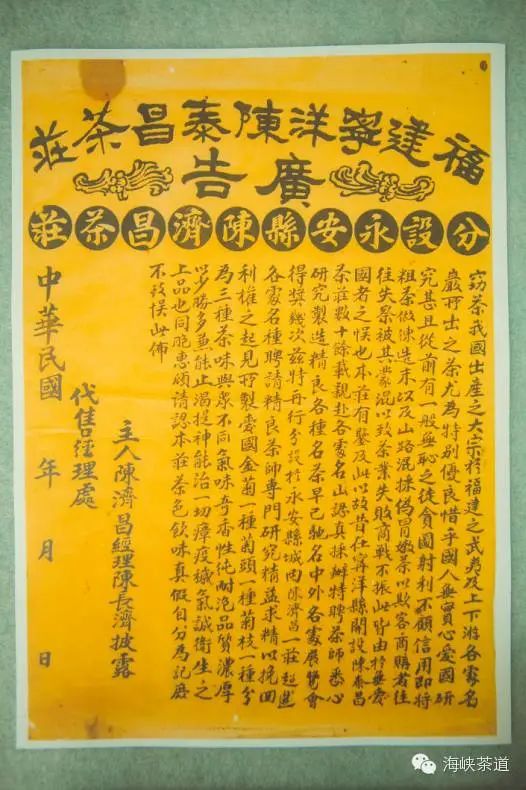 福建寧洋陳泰昌茶莊
廣告
分設永安縣陳濟昌茶莊
窃茶我國出産之大宗於福建之武夷及上下游各處名
巖所出之茶尤為特別優良惜乎國人無實心愛國研
究甚且從前有一般無恥之徒貪圖射利不顧信用即將
粗茶做陳造末以及山路混揉偽冒嫩茶以欺客商購者往
往失景被其蒙混以致茶業失敗商戰不振此皆由於無愛
國者之悮也本莊有鑒及此以故昔仕寧洋縣開設陳泰昌
茶莊數十餘載親赴各處名山認真採辦特聘茶師悉心
研究製造精良各種名茶早已馳名中外各處展覽會
得獎幾次茲特再行分設於永安縣城内陳濟昌一莊超選
各處名種聘請精良茶師專門研究精益求精以挽回
利權之起見所製愛國金菊一種菊頭一種菊枝一種分
為三種茶味與衆不同氣味奇香性纯耐泡品質濃厚
以少勝多兼能止渴提神能治一切瘴疫穢氣誠衛生之
上品也同胞惠顧请認本莊茶色飲味真假自分為記庶
不致悮此佈
主人陳濟昌經理陳長濟披露
代售經理處
中華民國 年 月 日
海峡茶道